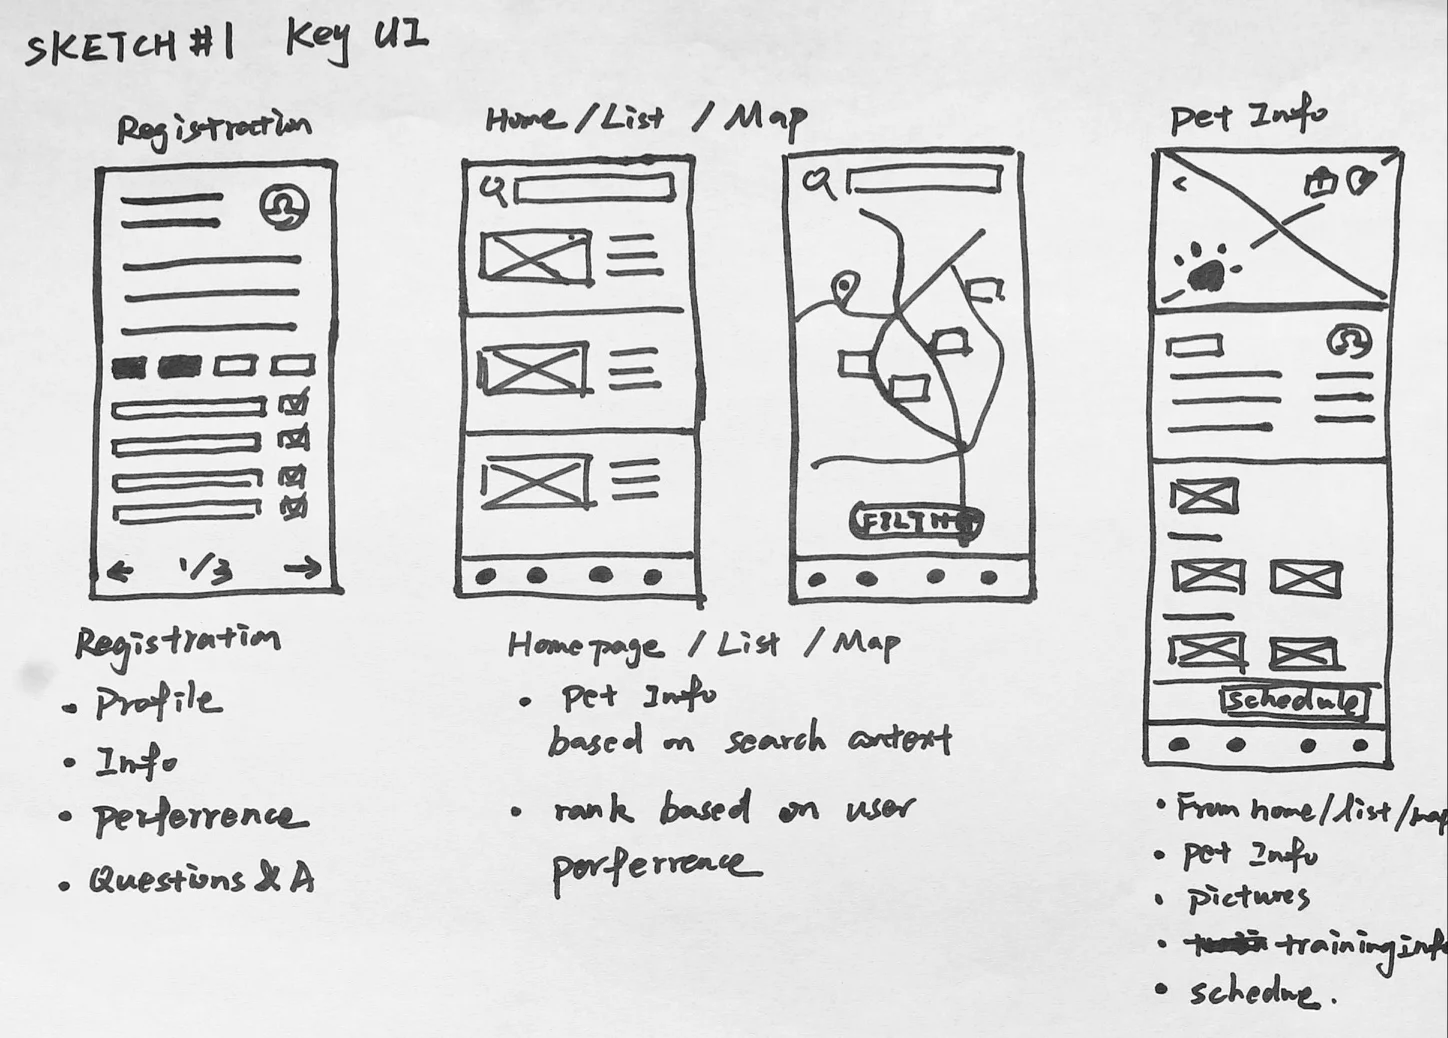 SKETCH #1 Key UI
Registration
Home / List / Map
Pet Info
1/3
Schedule
Registration
• Profile
• Info
• Perferrence
• Questions & A
Homepage / List / Map
• Pet Info
based on search context
• rank based on user
perferrence
• From home/list/map
• Pet Info
• Pictures
• training info
• schedule.